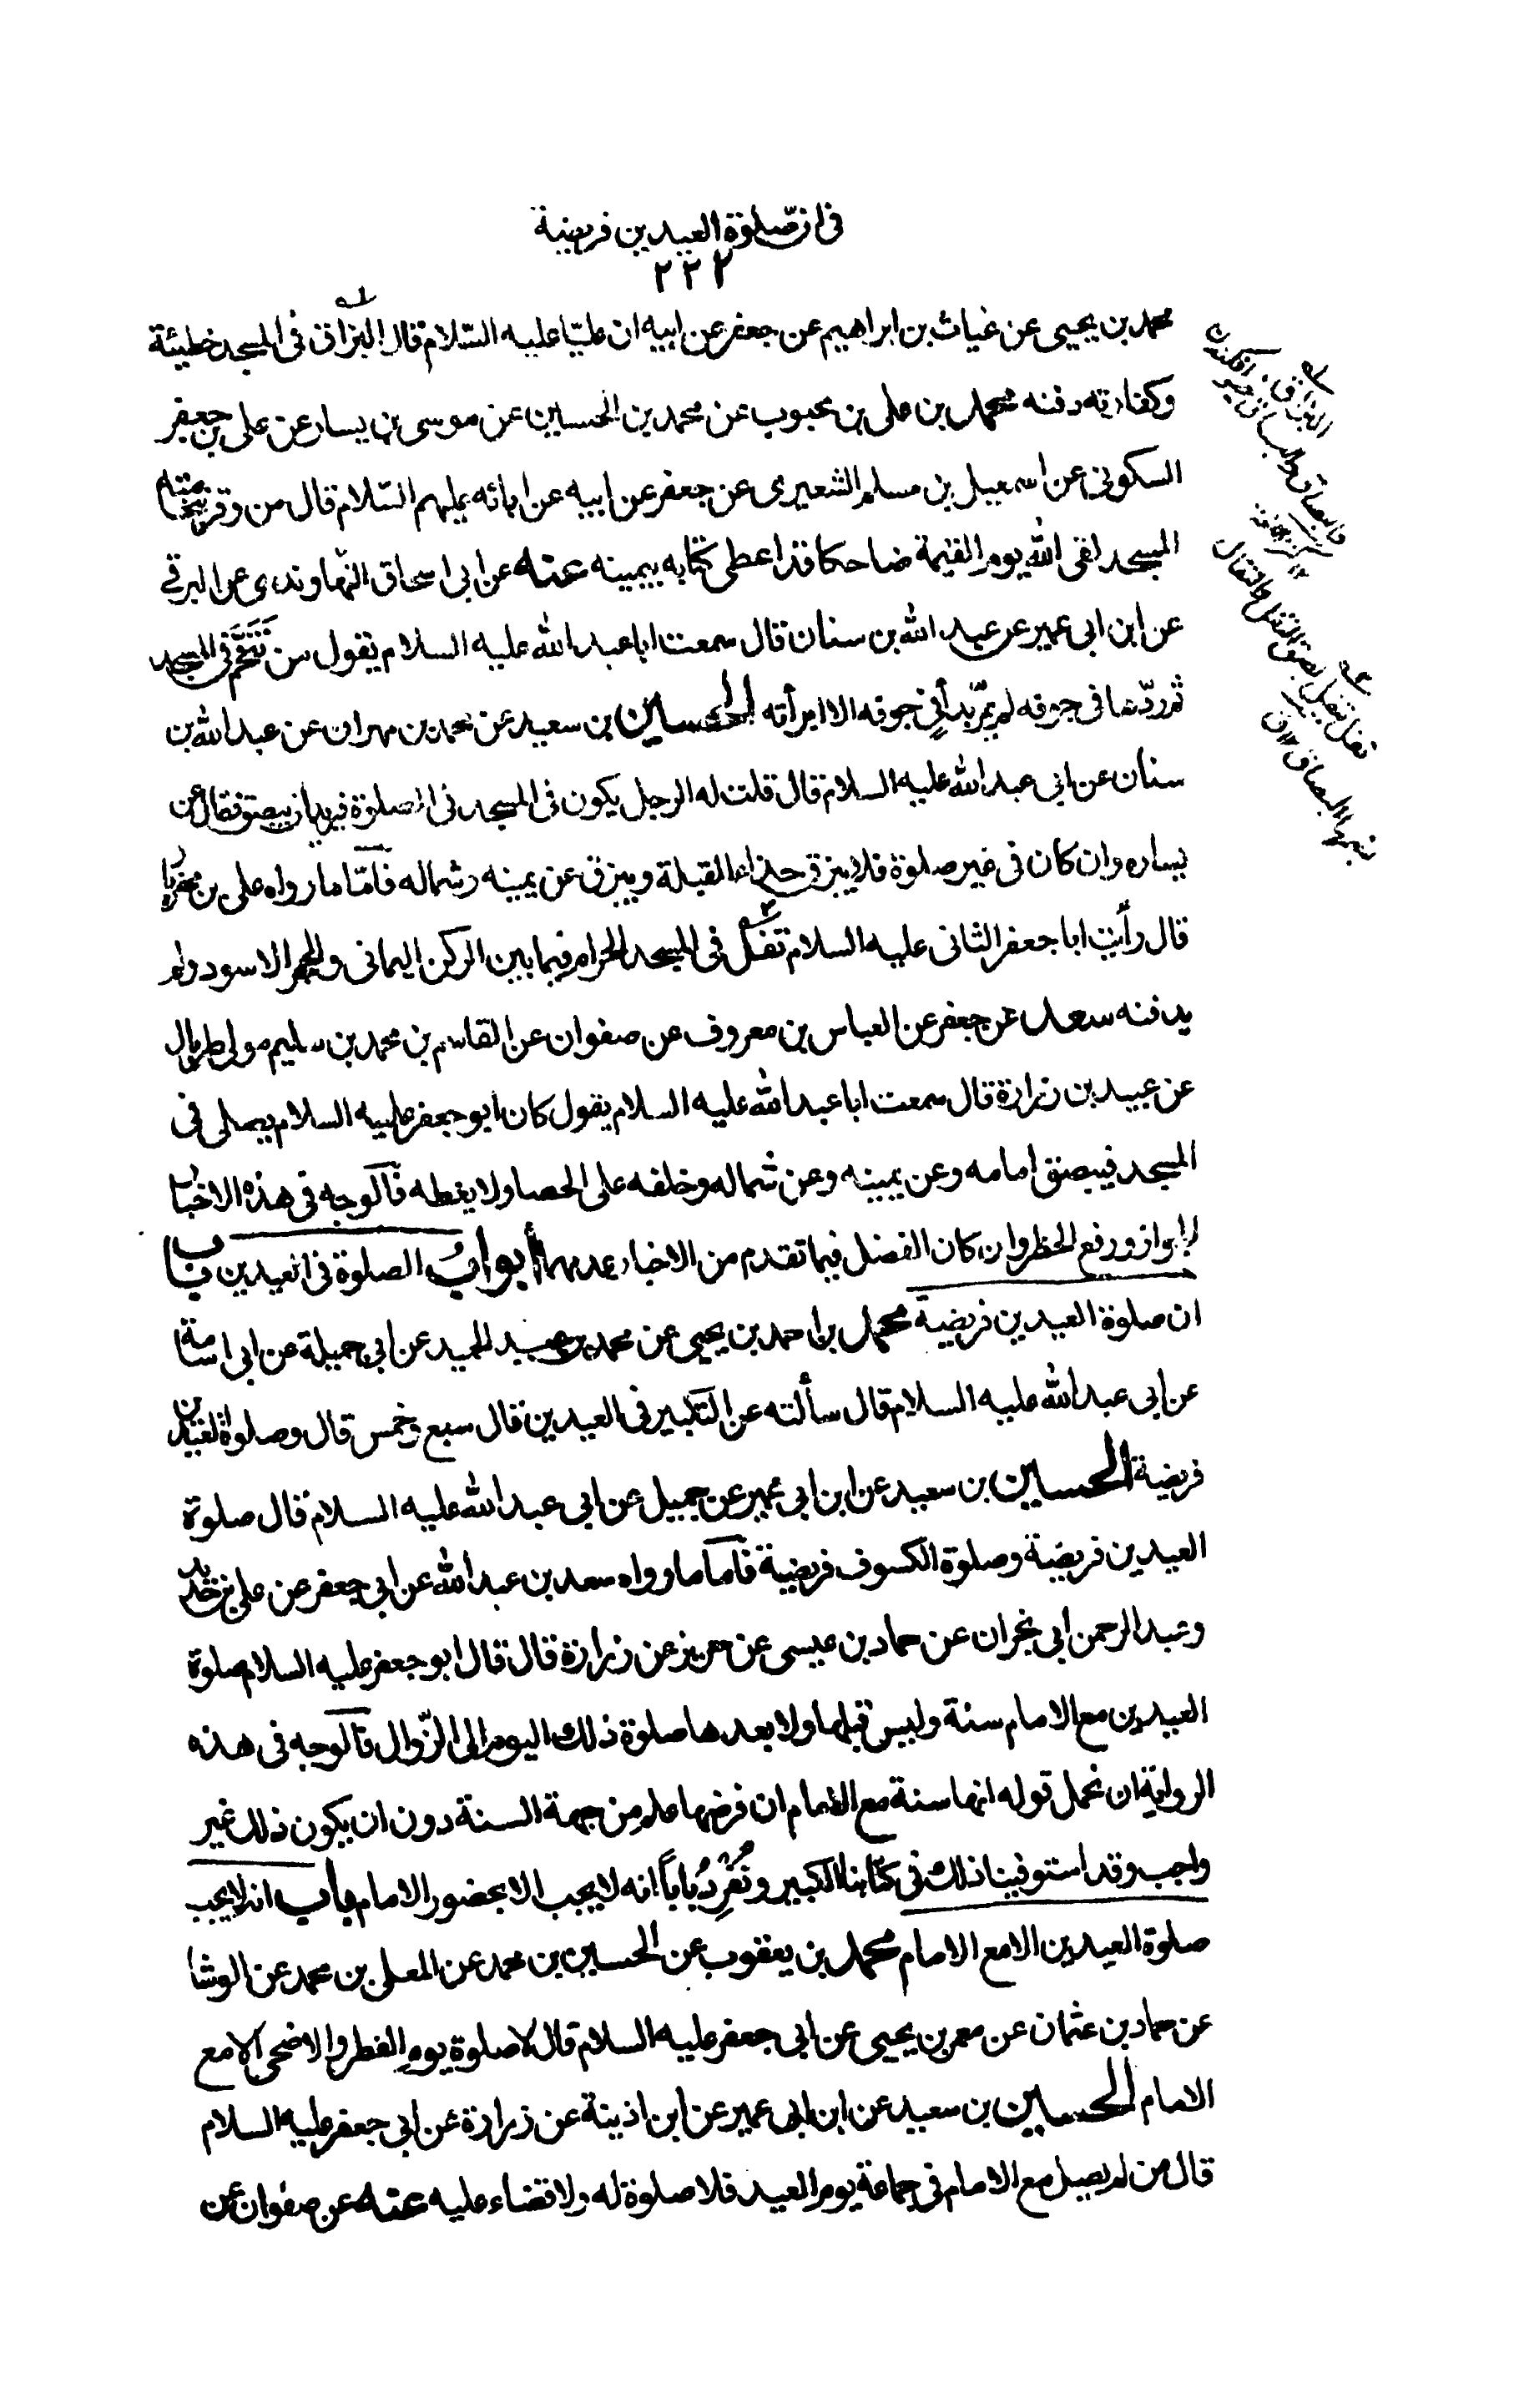 فى ان صلوة العيدين فريضة
٢٢٢
محمد بن يحيى عن غياث بن ابراهيم عن جعفر عن ابيه ان عليّا عليه السّلام قال البزاق فى المسجد خطيئة
وكفارته دفنه محمد بن على بن محبوب عن محمد بن الحسين عن موسى بن يسار عن على بن جعفر
السكونى عن اسمعيل بن مسلم الشعيرى عن جعفر عن ابيه عن ابائه عليهم السّلام قال من وقر بنخامته
المسجد لقى الله يوم القيٰمة ضاحكا قد اعطى كتابه بيمينه عنه عن ابى اسحاق النّهاوندى عن البرقى
عن ابن ابى عمير عن عبد الله بن سنان قال سمعت ابا عبد الله عليه السلام يقول من تَنَخَّمَ فى المسجد
ثم ردّها فى جوفه لم يمرّ بدأٍ فى جوفه الا ابرأته الحسين بن سعيد عن محمد بن مهران عن عبد الله بن
سنان عن ابى عبد الله عليه السلام قال قلت له الرجل يكون فى المسجد فى الصلوة فيريد ان يبصق فقال عن
يساره وان كان فى غير صلوة فلا يبزق حذاء القبلة ويبزق عن يمينه وشماله فامّا ما رواه على بن مهزيار
قال رأيت ابا جعفر الثانى عليه السلام تفل فى المسجد الحرام فيما بين الركن اليمانى والحجر الاسود ولم
يدفنه سعد عن جعفر عن العباس بن معروف عن صفوان عن القاسم بن محمد بن سليم مولى طربال
عن عبيد بن زرارة قال سمعت ابا عبد الله عليه السلام يقول كان ابو جعفر عليه السلام يصلى فى
المسجد فيبصق امامه وعن يمينه وعن شماله وخلفه على الحصا ولا يغطه فالوجه فى هذه الاخبار
الجواز ورفع الحظر وان كان الفضل فيما تقدم من الاخبار عدمها أبوابُ الصلوة فى العيدين باب
ان صلوة العيدين فريضة محمد بن احمد بن يحيى عن محمد بن عبد الحميد عن ابى جميلة عن ابى اسامة
عن ابى عبد الله عليه السلام قال سألته عن التكبير فى العيدين قال سبع وخمس قال وصلوة العيدين
فريضة الحسين بن سعيد عن ابن ابى عمير عن جميل عن ابى عبد الله عليه السلام قال صلوة
العيدين فريضة وصلوة الكسوف فريضة فاما ما رواه سعد بن عبد الله عن ابى جعفر عن على بن حديد
وعبد الرحمن ابى نجران عن حماد بن عيسى عن حريز عن زرارة قال قال ابو جعفر عليه السلام صلوة
العيدين مع الامام سنة وليس قبلها ولا بعدها صلوة ذلك اليوم الى الزّوال فالوجه فى هذه
الرواية ان نحمل قوله انها سنة مع الامام ان فرضها علم من جهة السنة دون ان يكون ذلك غير
واجب وقد استوفينا ذلك فى كتابنا الكبير ونُفْرِدُ باباً انه لا يجب الا بحضور الامام باب انه لا يجب
صلوة العيدين الا مع الامام محمد بن يعقوب عن الحسين بن محمد عن المعلى بن محمد عن الوشا
عن حماد بن عثمان عن معمر بن يحيى عن ابى جعفر عليه السلام قال لا صلوة يوم الفطر والاضحى الا مع
الامام الحسين بن سعيد عن ابن ابى عمير عن ابن اذينة عن زرارة عن ابى جعفر عليه السلام
قال من لم يصل مع الامام فى جماعة يوم العيد فلا صلوة له ولا قضاء عليه عنه عن صفوان عن